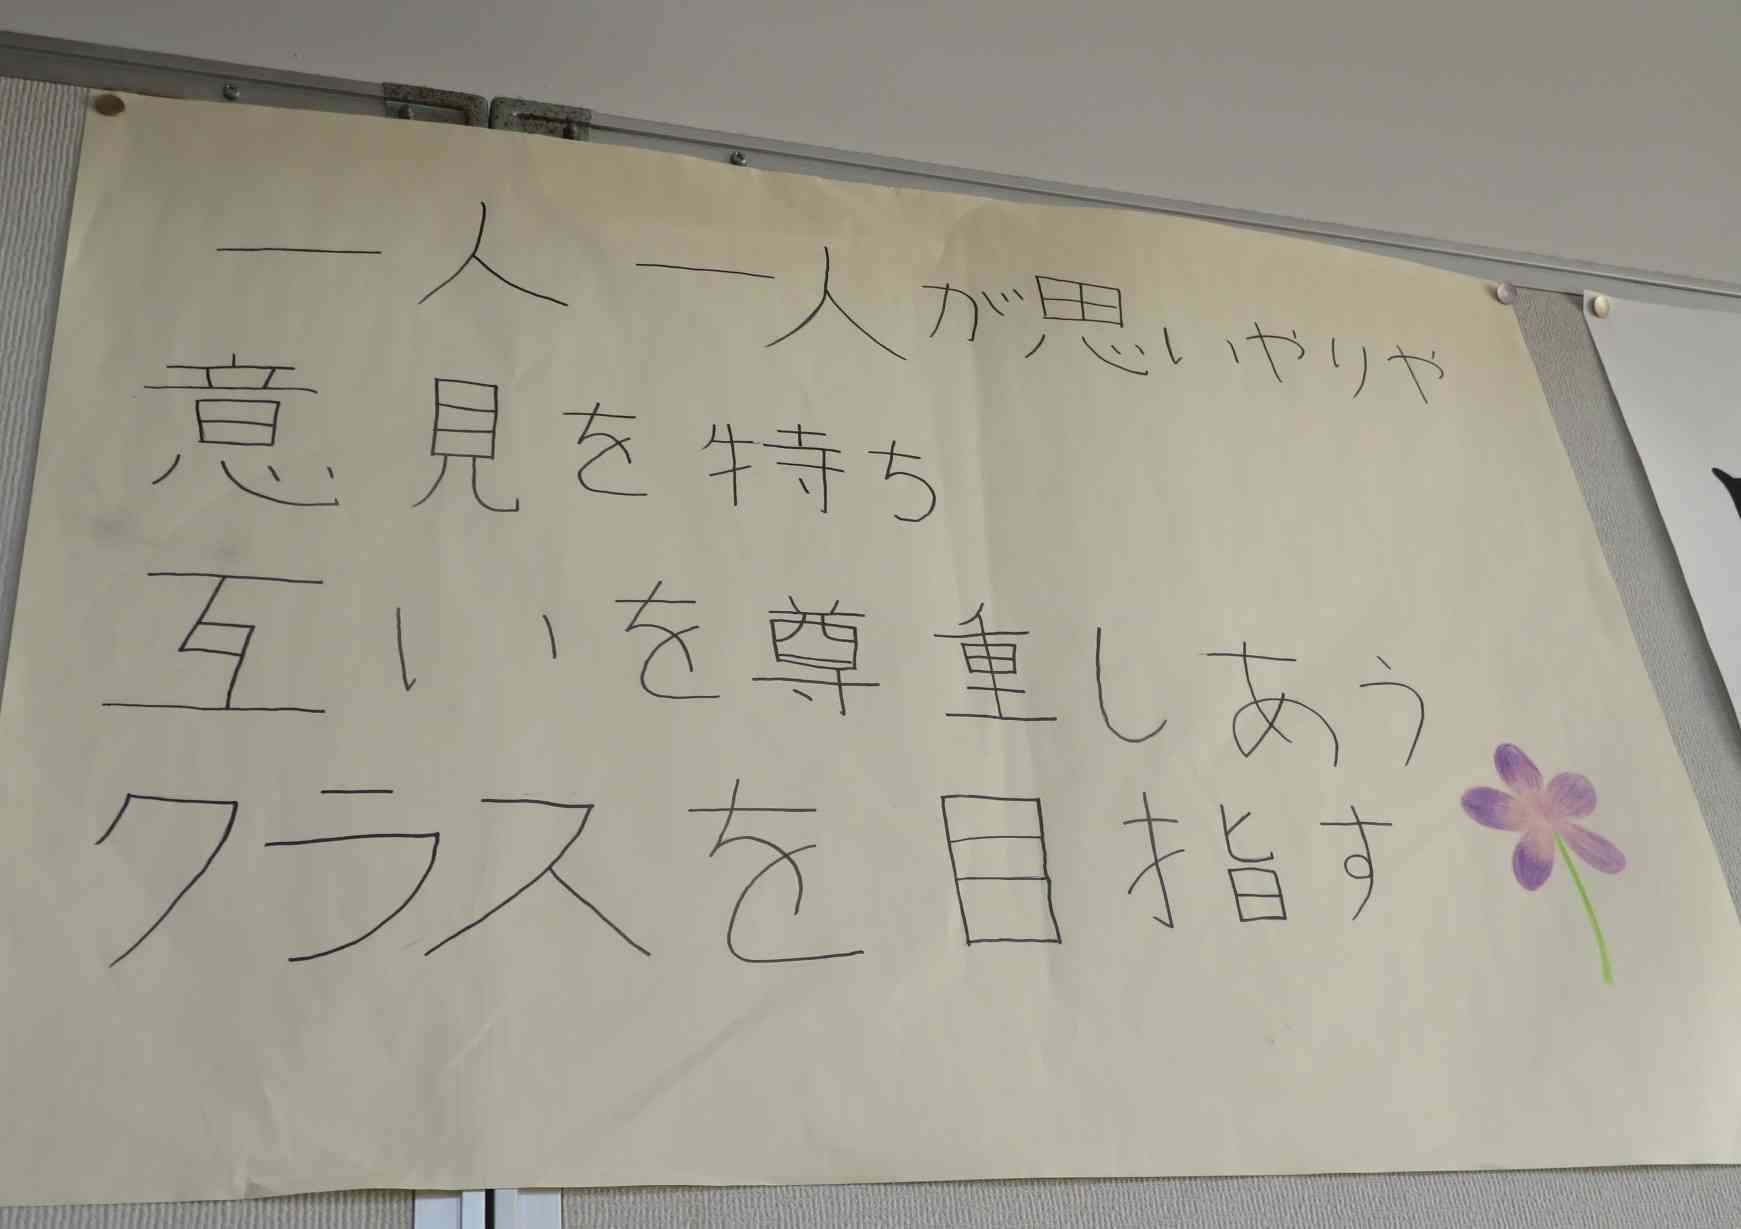 一人一人が思いやりや
意見を持ち
互いを尊重しあう
クラスを目指す